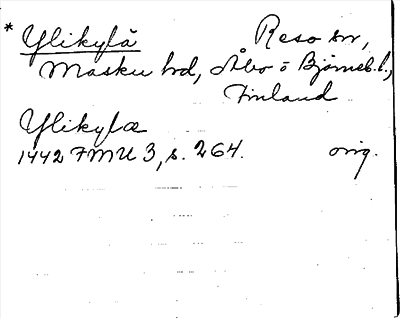 * Ylikylä Reso sn,
Masku hd, Åbo o Björneb. l.,
Finland
Ylikylæ
1442 FMU 3, s. 264. orig.